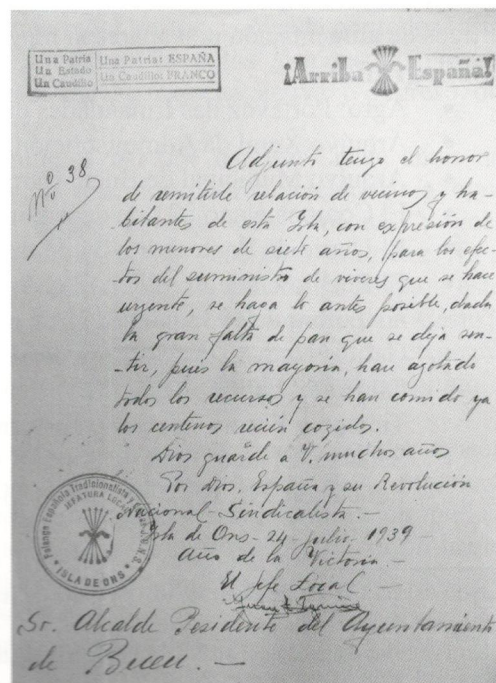 Una Patria
Un Estado
Un Caudillo
Una Patria: ESPAÑA
Un Caudillo: FRANCO
¡Arriba España!
Nº 38
Adjunto tengo el honor
de remitirle relación de vecinos y ha-
bitantes de esta Isla, con expresión de
los menores de siete años, para los efec-
tos del suministro de viveres que se hace
urgente, se haga lo antes posible, dada
la gran falta de pan que se deja sen-
-tir, pues la mayoría, han agotado
todos los recursos y se han comido ya
los centenos recién cogidos.
Dios guarde a V. muchos años
Por Dios, España y su Revolución
Nacional-Sindicalista.-
Isla de Ons- 24- julio- 1939-
Año de la Victoria.-
El jefe Local-
Falange Española Tradicionalista y de las J.O.N.S.
JEFATURA LOCAL
ISLA DE ONS
Sr. Alcalde Presidente del Ayuntamiento
de Bueu.-